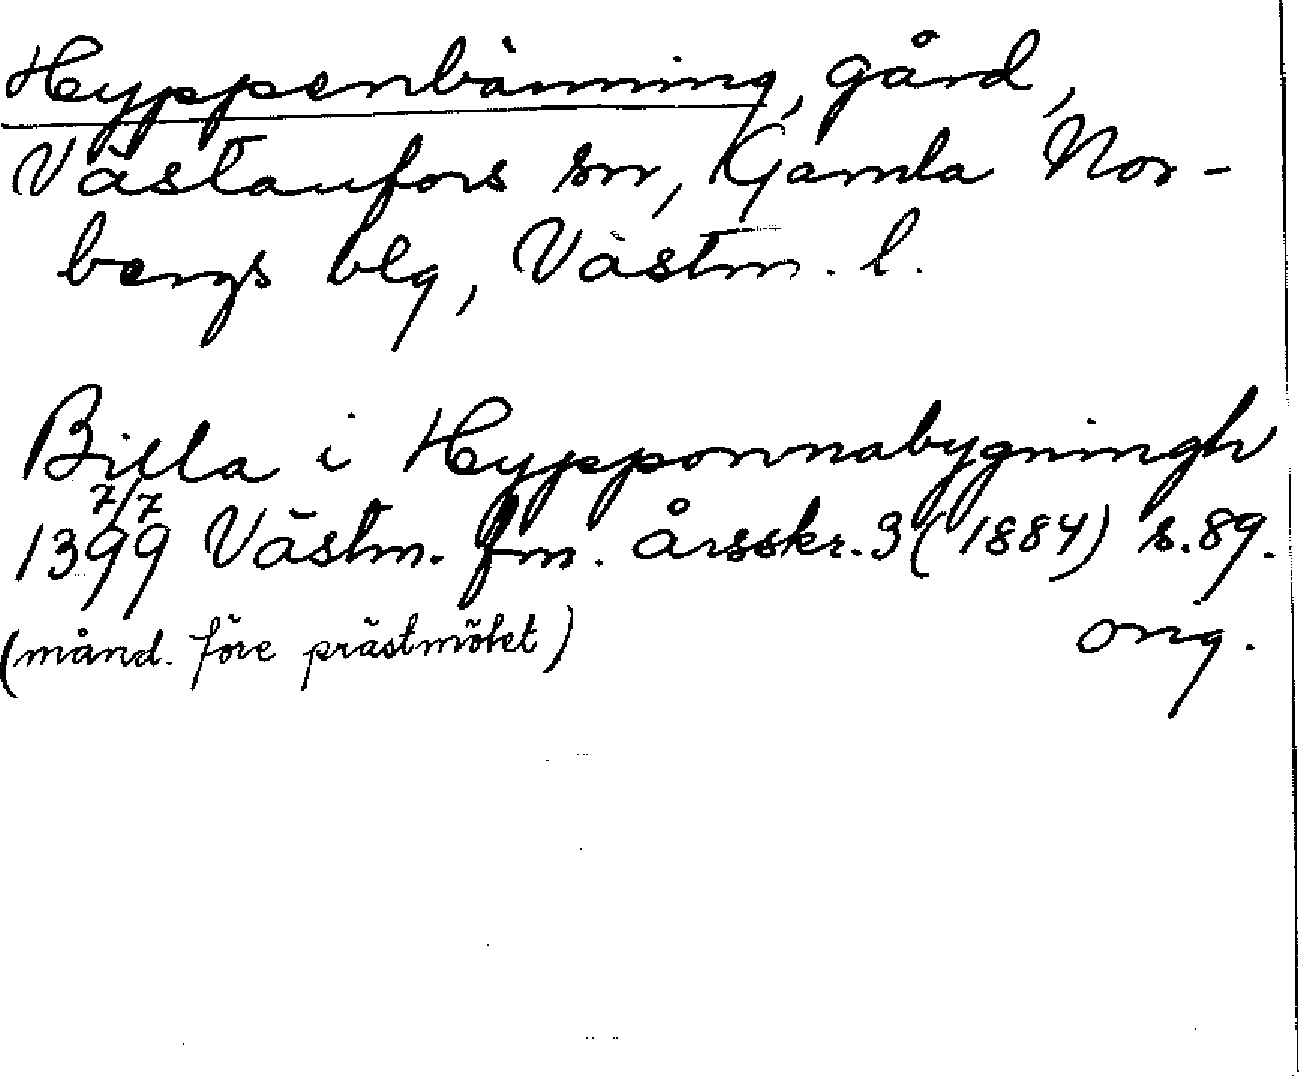 Hyppenbänning, gård,
Västanfors sn, Gamla Nor-
bergs blg, Västm. l.
Billa i Hypponnabygningh
7/7
1399 Västm. fm. årsskr. 3 (1884) s. 89.
(månd. före prästmötet) orig.